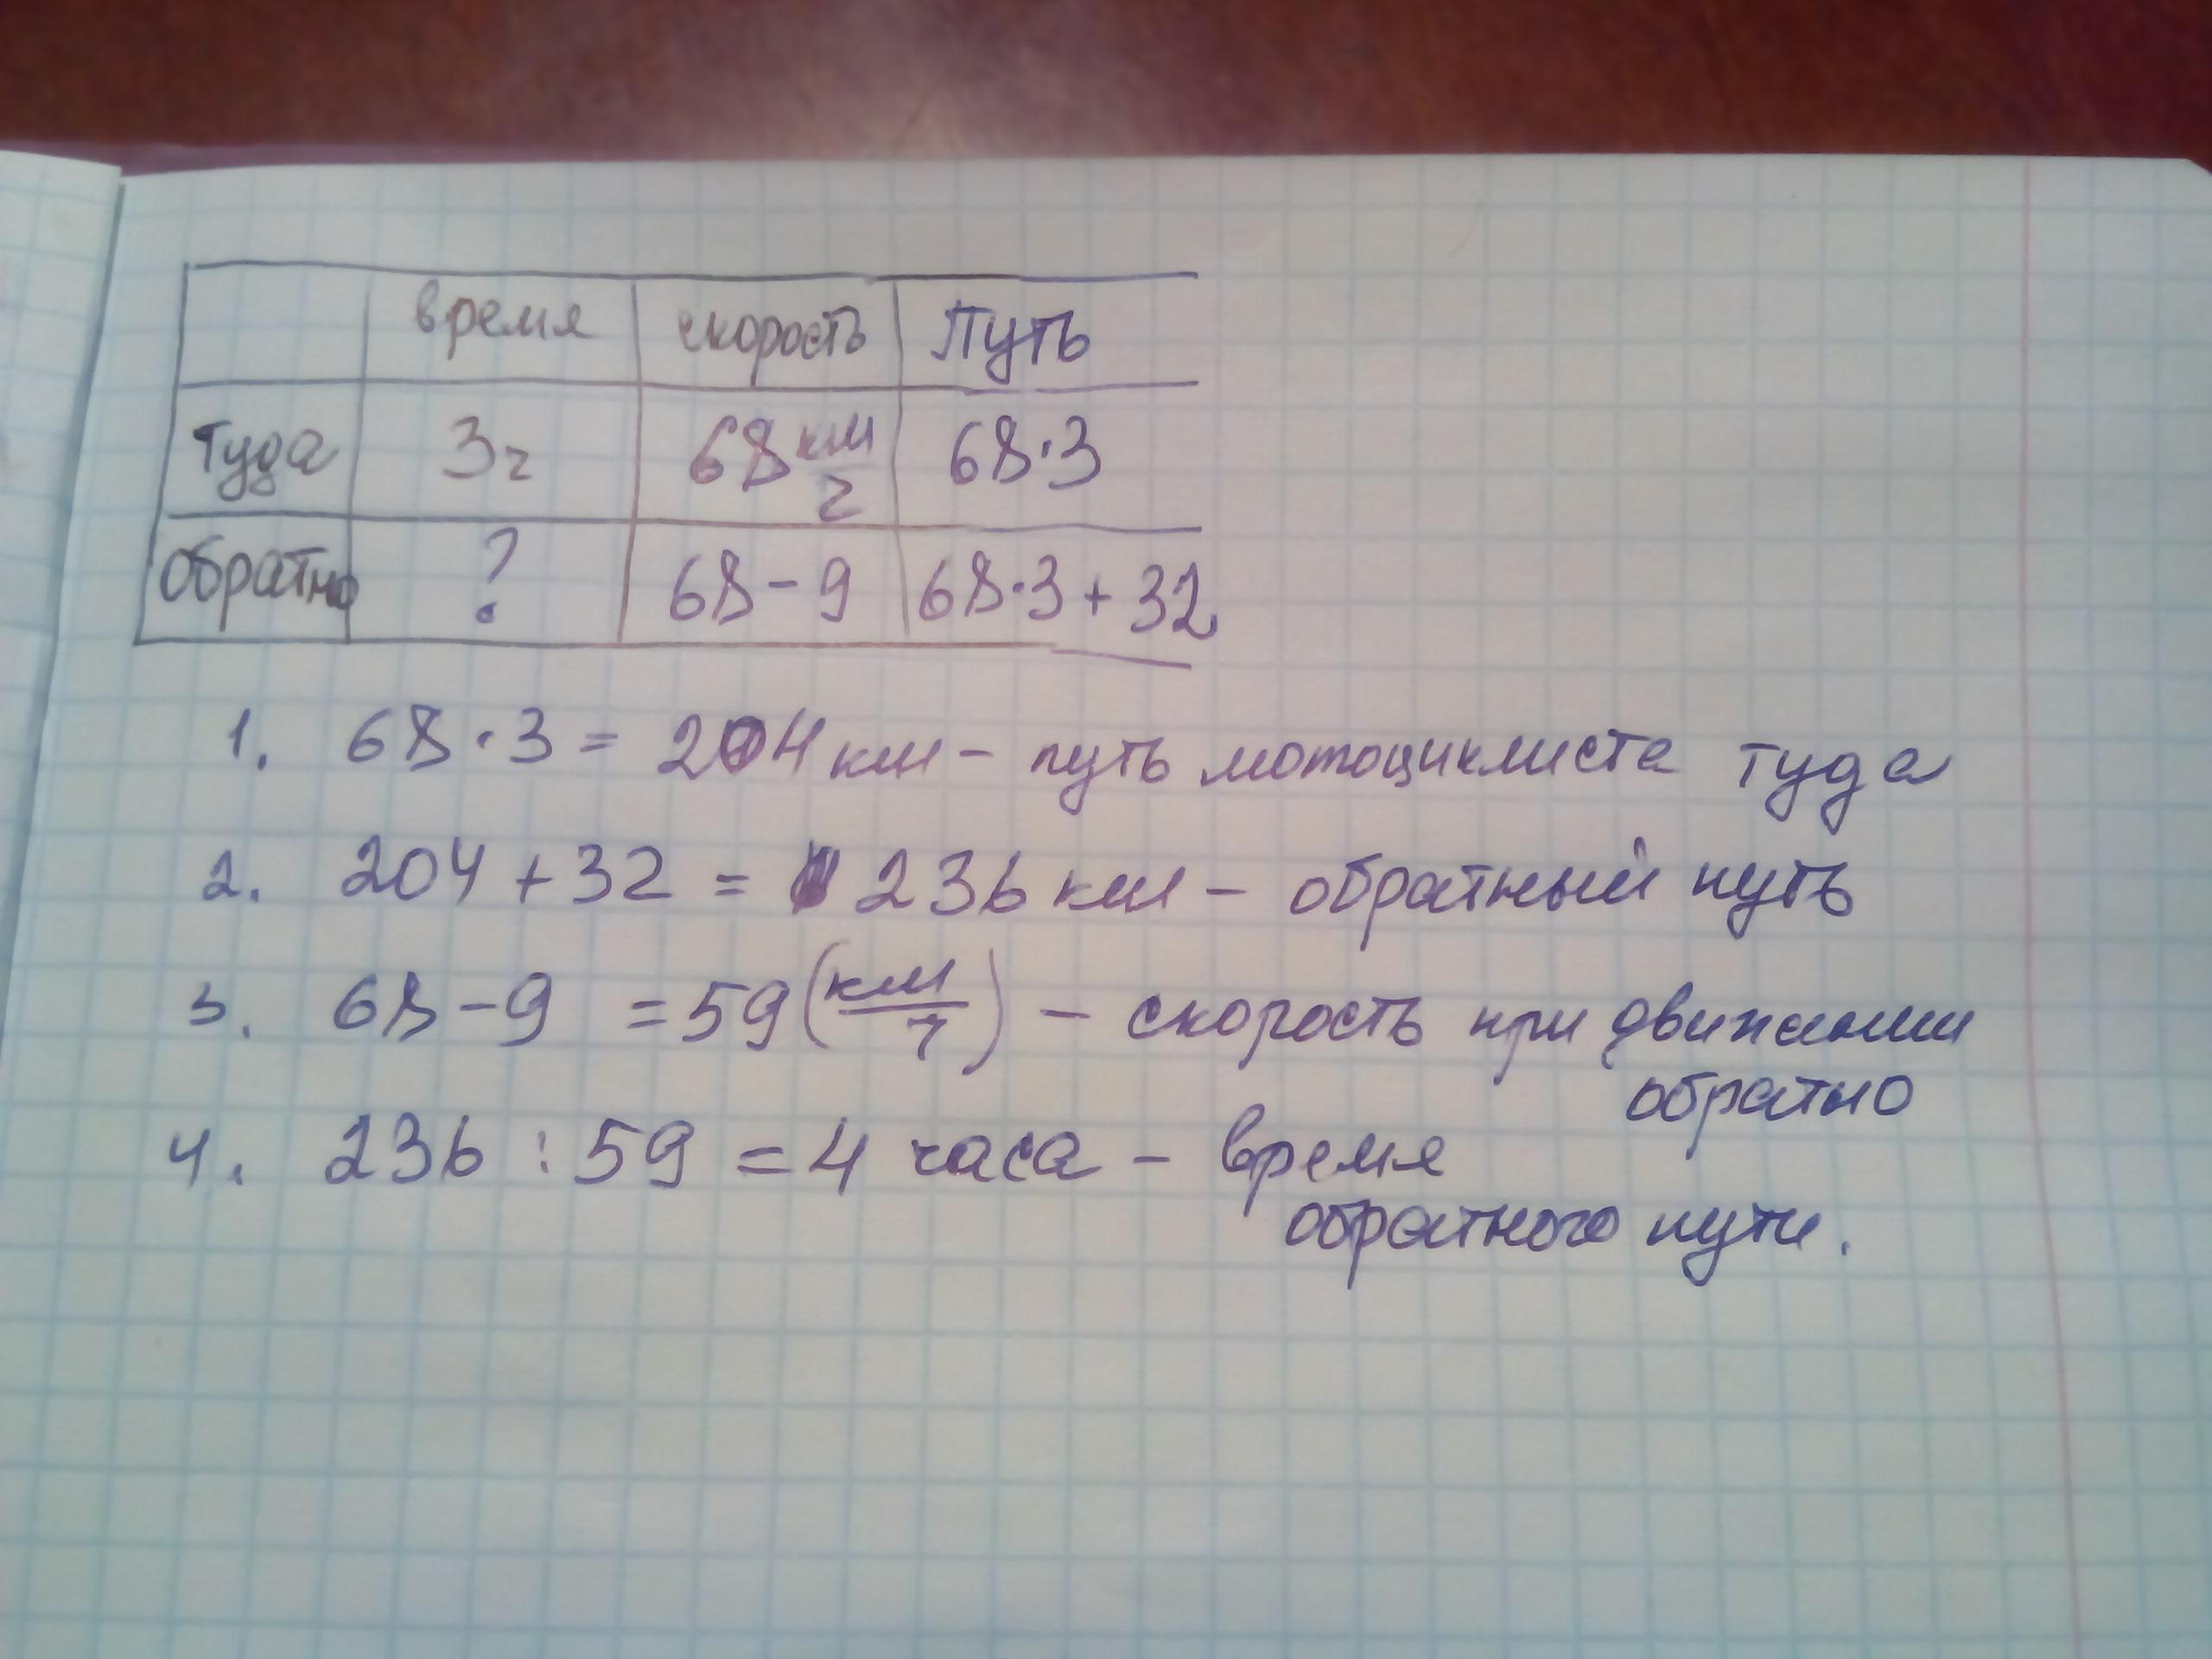 время скорость Путь
туда 3ч 68 км/ч 68·3
обратно ? 68-9 68·3+32
1. 68·3 = 204 км - путь мотоциклиста туда
2. 204 + 32 = 236 км - обратный путь
3. 68-9 = 59 (км/ч) - скорость при движении
обратно
4. 236 : 59 = 4 часа - время
обратного пути.